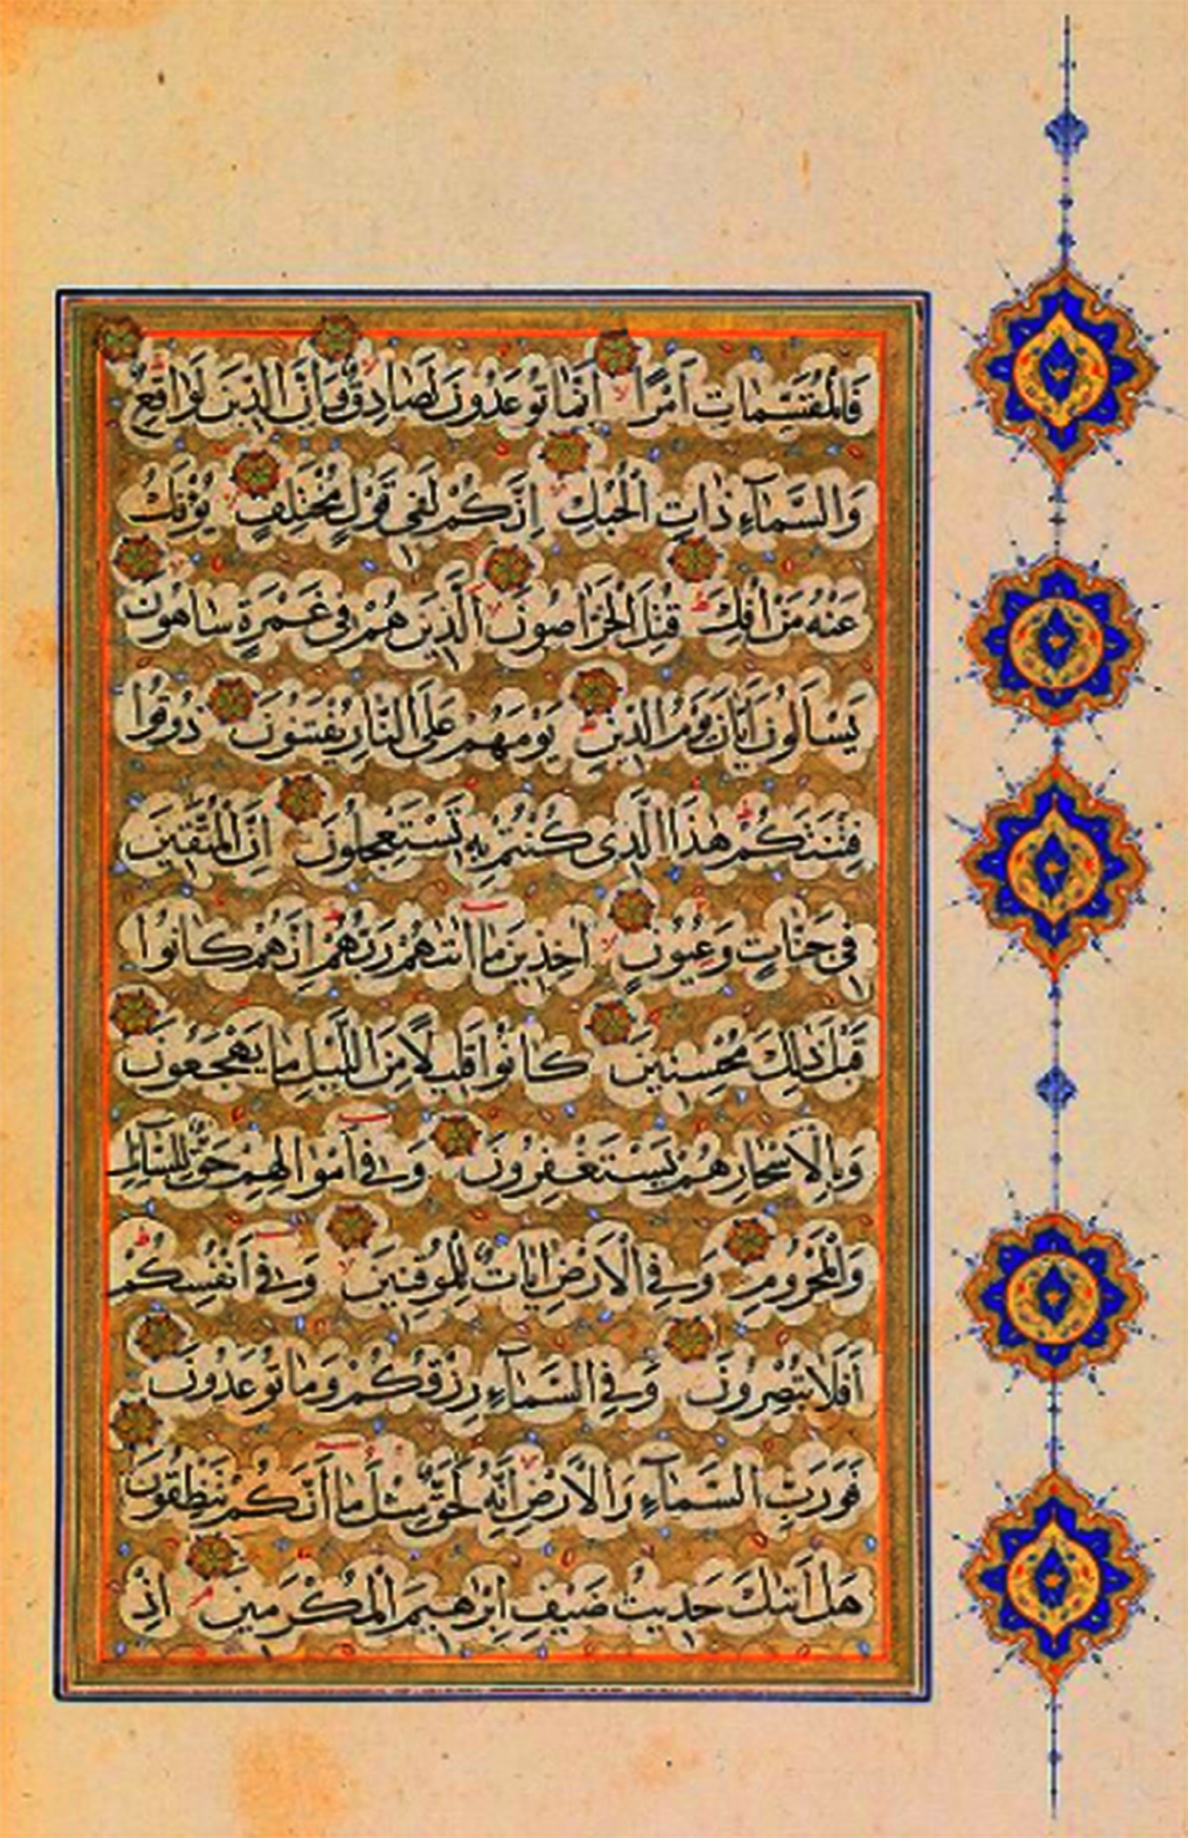 فَالْمُقَسِّمَاتِ أَمْرًا إِنَّمَا تُوعَدُونَ لَصَادِقٌ وَإِنَّ الدِّينَ لَوَاقِعٌ
وَالسَّمَآءِ ذَاتِ الْحُبُكِ إِنَّكُمْ لَفِى قَوْلٍ مُخْتَلِفٍ يُؤْفَكُ
عَنْهُ مَنْ أُفِكَ قُتِلَ الْخَرَّاصُونَ الَّذِينَ هُمْ فِى غَمْرَةٍ سَاهُونَ
يَسْأَلُونَ أَيَّانَ يَوْمُ الدِّينِ يَوْمَهُمْ عَلَى النَّارِ يُفْتَنُونَ ذُوقُوا
فِتْنَتَكُمْ هٰذَا الَّذِى كُنْتُمْ بِهِ تَسْتَعْجِلُونَ إِنَّ الْمُتَّقِينَ
فِى جَنَّاتٍ وَعُيُونٍ اٰخِذِينَ مَا اٰتٰهُمْ رَبُّهُمْ إِنَّهُمْ كَانُوا
قَبْلَ ذٰلِكَ مُحْسِنِينَ كَانُوا قَلِيلًا مِنَ اللَّيْلِ مَا يَهْجَعُونَ
وَبِالْأَسْحَارِ هُمْ يَسْتَغْفِرُونَ وَفِى أَمْوَالِهِمْ حَقٌّ لِلسَّآئِلِ
وَالْمَحْرُومِ وَفِى الْأَرْضِ اٰيَاتٌ لِلْمُوقِنِينَ وَفِى أَنْفُسِكُمْ
أَفَلَا تُبْصِرُونَ وَفِى السَّمَآءِ رِزْقُكُمْ وَمَا تُوعَدُونَ
فَوَرَبِّ السَّمَآءِ وَالْأَرْضِ إِنَّهُ لَحَقٌّ مِثْلَ مَا أَنَّكُمْ تَنْطِقُونَ
هَلْ أَتٰىكَ حَدِيثُ ضَيْفِ إِبْرٰهِيمَ الْمُكْرَمِينَ إِذْ